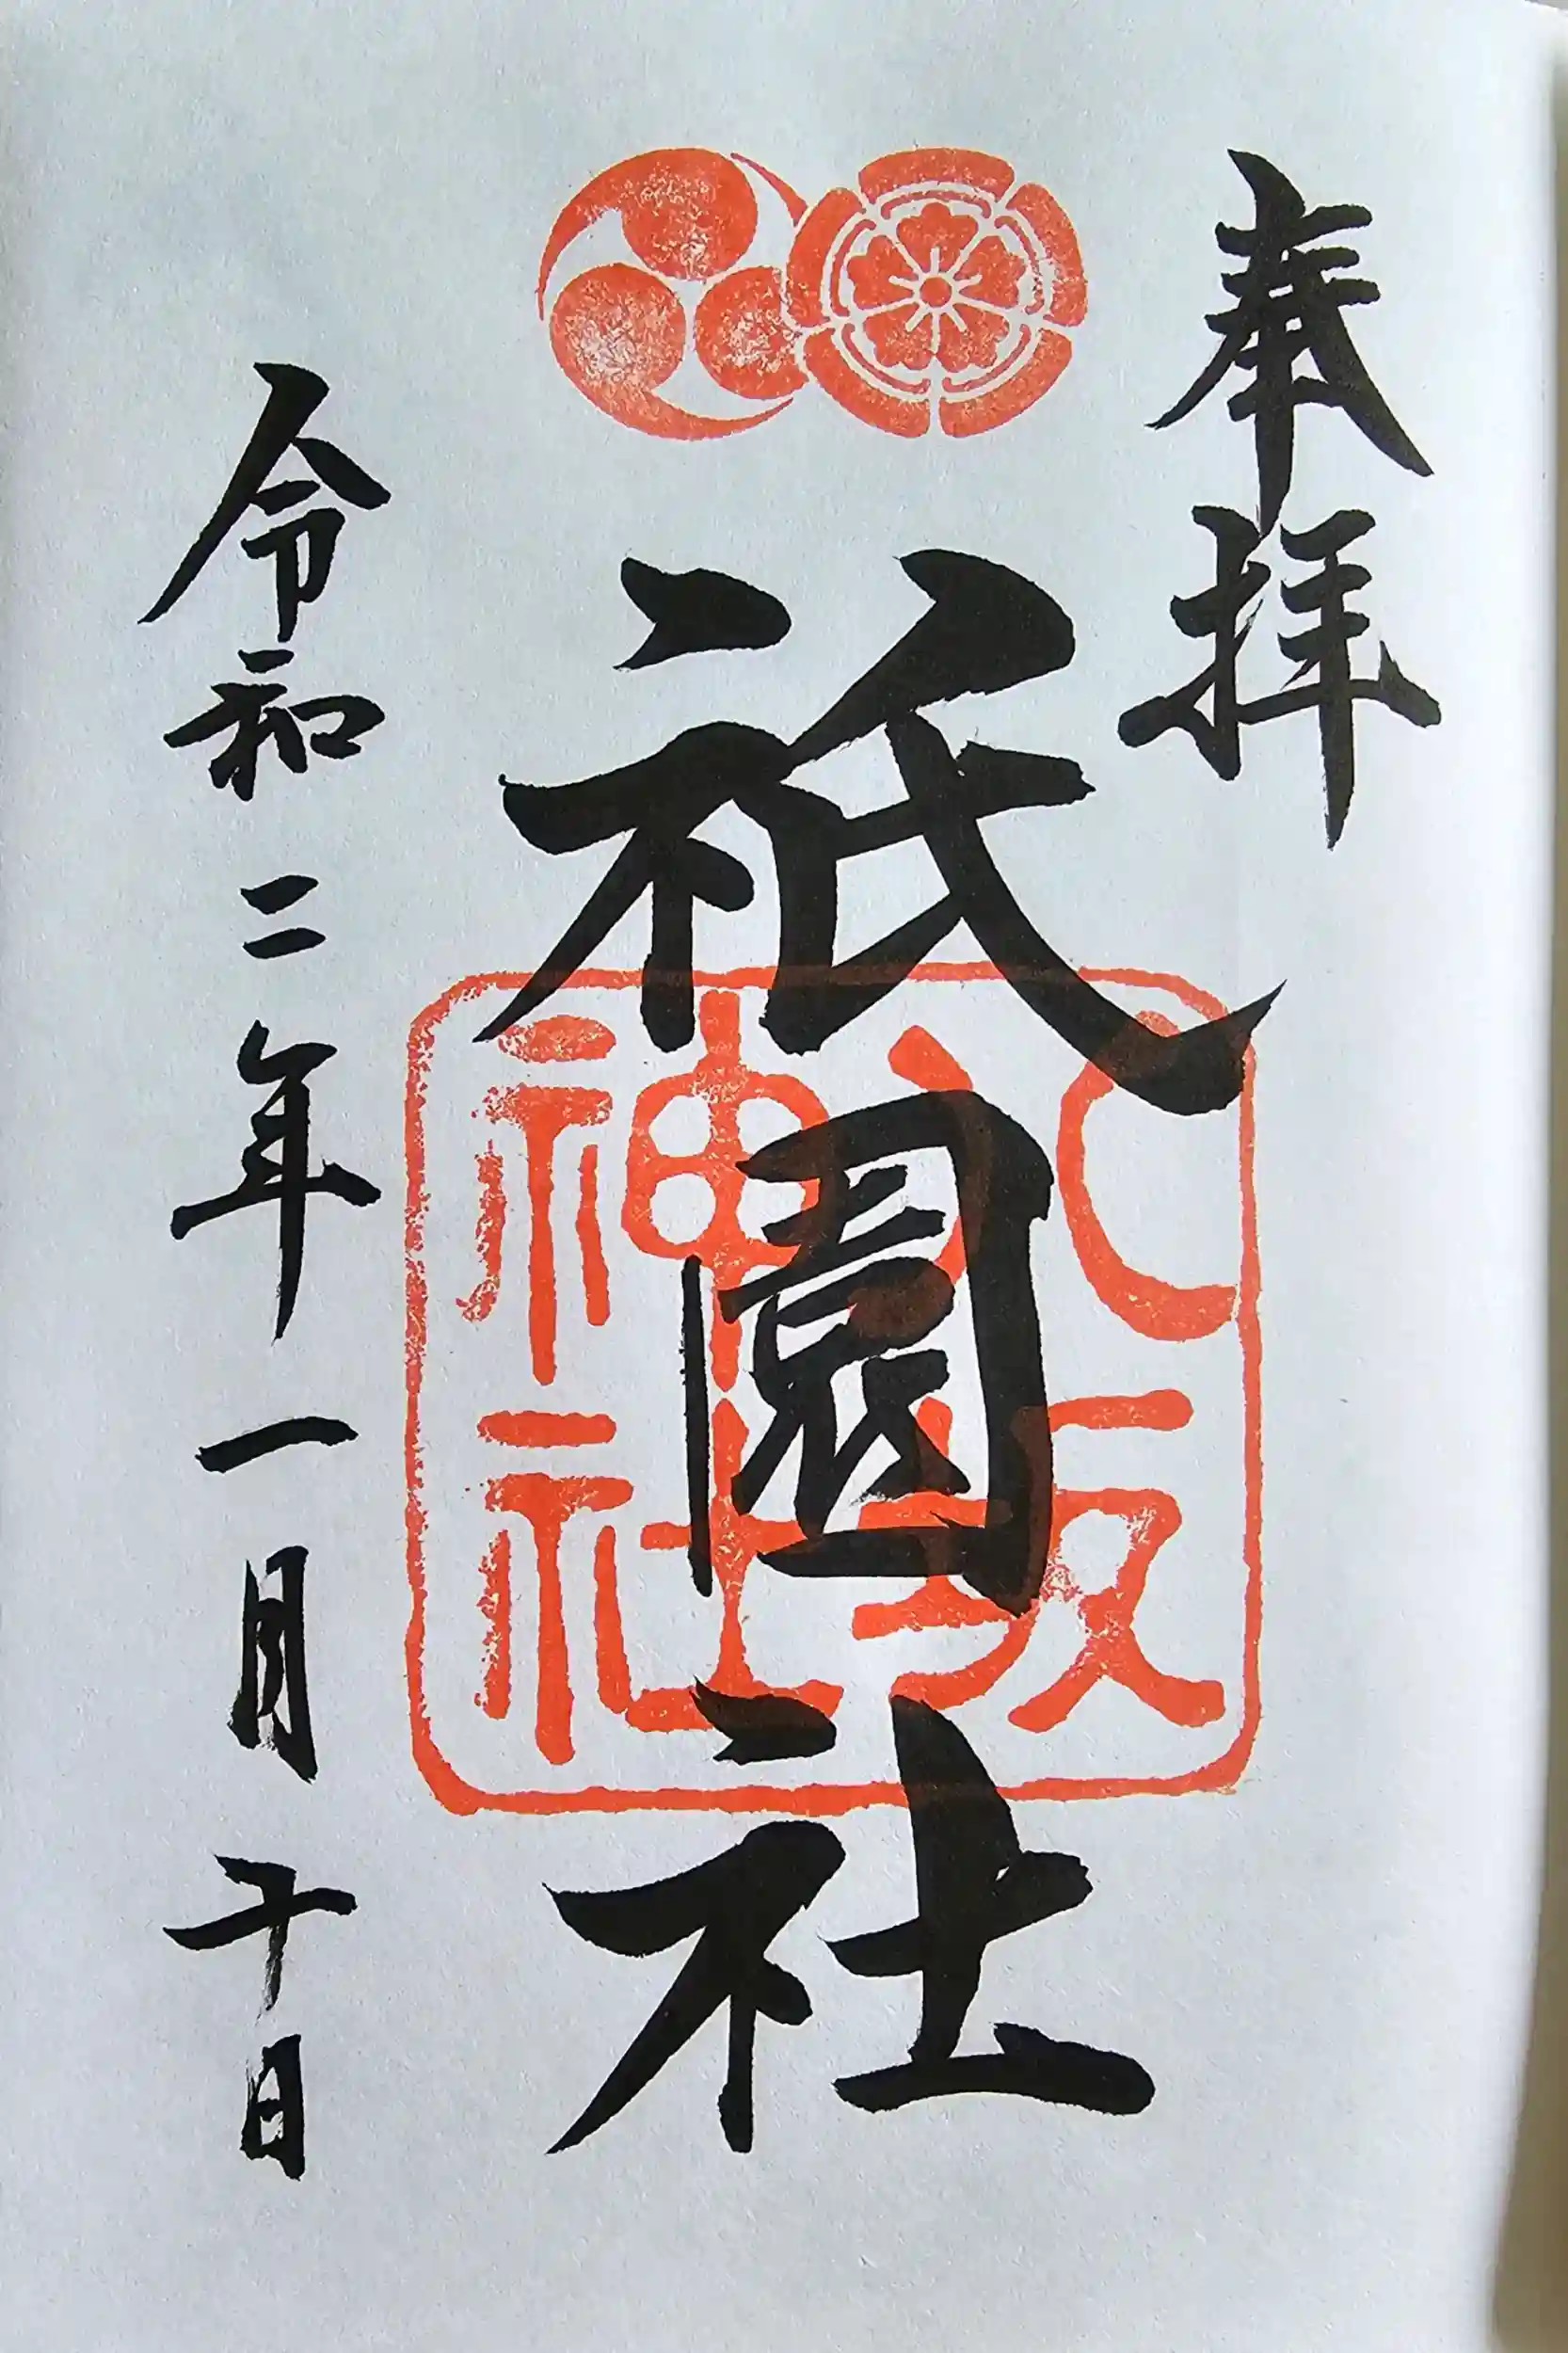 奉拝
祇園社
八坂神社
令和二年一月十日